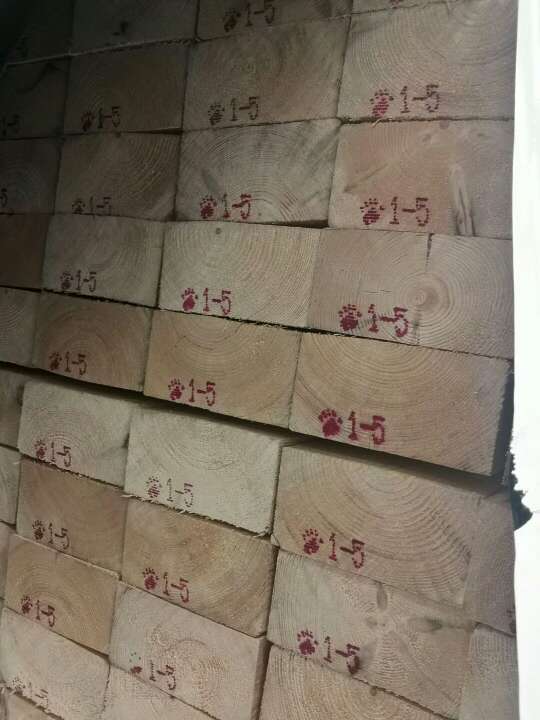 1-5
1-5
1-5
1-5
1-5
1-5
1-5
1-5
1-5
1-5
1-5
1-5
1-5
1-5
1-5
1-5
1-5
1-5
1-5
1-5
1-5
1-5
1-5
1-5